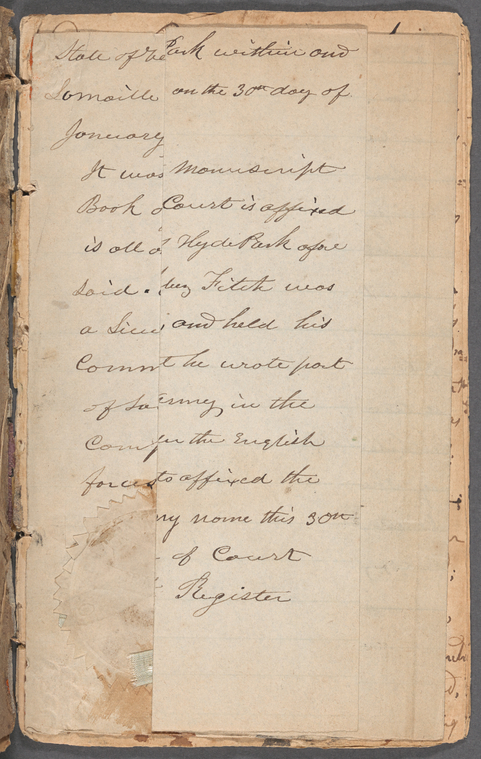 State of Ve Park within and
Lamoille on the 30th day of
January
It was Manuscript
Book Court is affixed
is all o Hyde Park afore
said. bez Fitch was
a Lieu and held his
Commt he wrote part
of sa army in the
Comp in the English
forces to affixed the
my name this 30th
of Court
Register